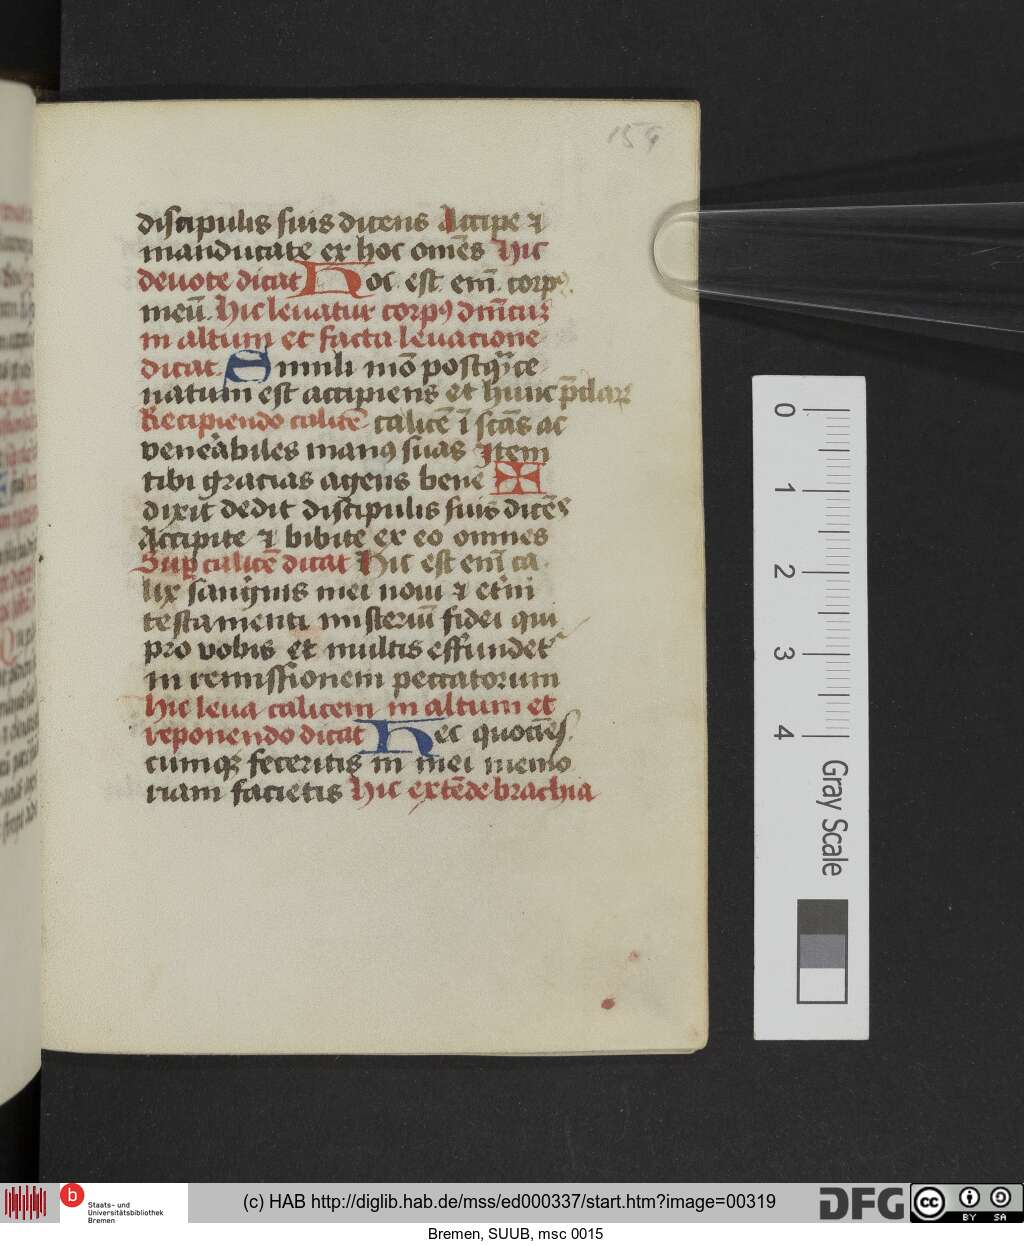 159
discipulis suis dicens Accipe ⁊
manducate ex hoc om̄es Hic
deuote dicat Hoc est em̄ corpꝰ
meū. Hic leuatur corpꝰ dnīcuꝫ
in altum et facta leuatione
dicat. Simili mō postqᷓ ce
natum est accipiens et hunc p̄claꝝ
Recipiendo calicē calicē ī sc̄as ac
venerabiles manꝰ suas Item
tibi gracias agens bene ✠
dixit dedit discipulis suis dicēs
Accipite ⁊ bibite ex eo omnes
Suꝑ calicē dicat Hic est em̄ ca
lix sanguinis mei noui ⁊ et͛ni
testamenti misteriū fidei qui
pro vobis et multis effundet᷑
in remissionem peccatorum
Hic leua calicem in altum et
reponendo dicat Hec quociēs
cumqꝫ feceritis in mei memo
riam facietis Hic extēde brachia
0
1
2
3
4
Gray Scale
b
Staats- und
Universitätsbibliothek
Bremen
(c) HAB http://diglib.hab.de/mss/ed000337/start.htm?image=00319
DFG
cc
BY SA
Bremen, SUUB, msc 0015